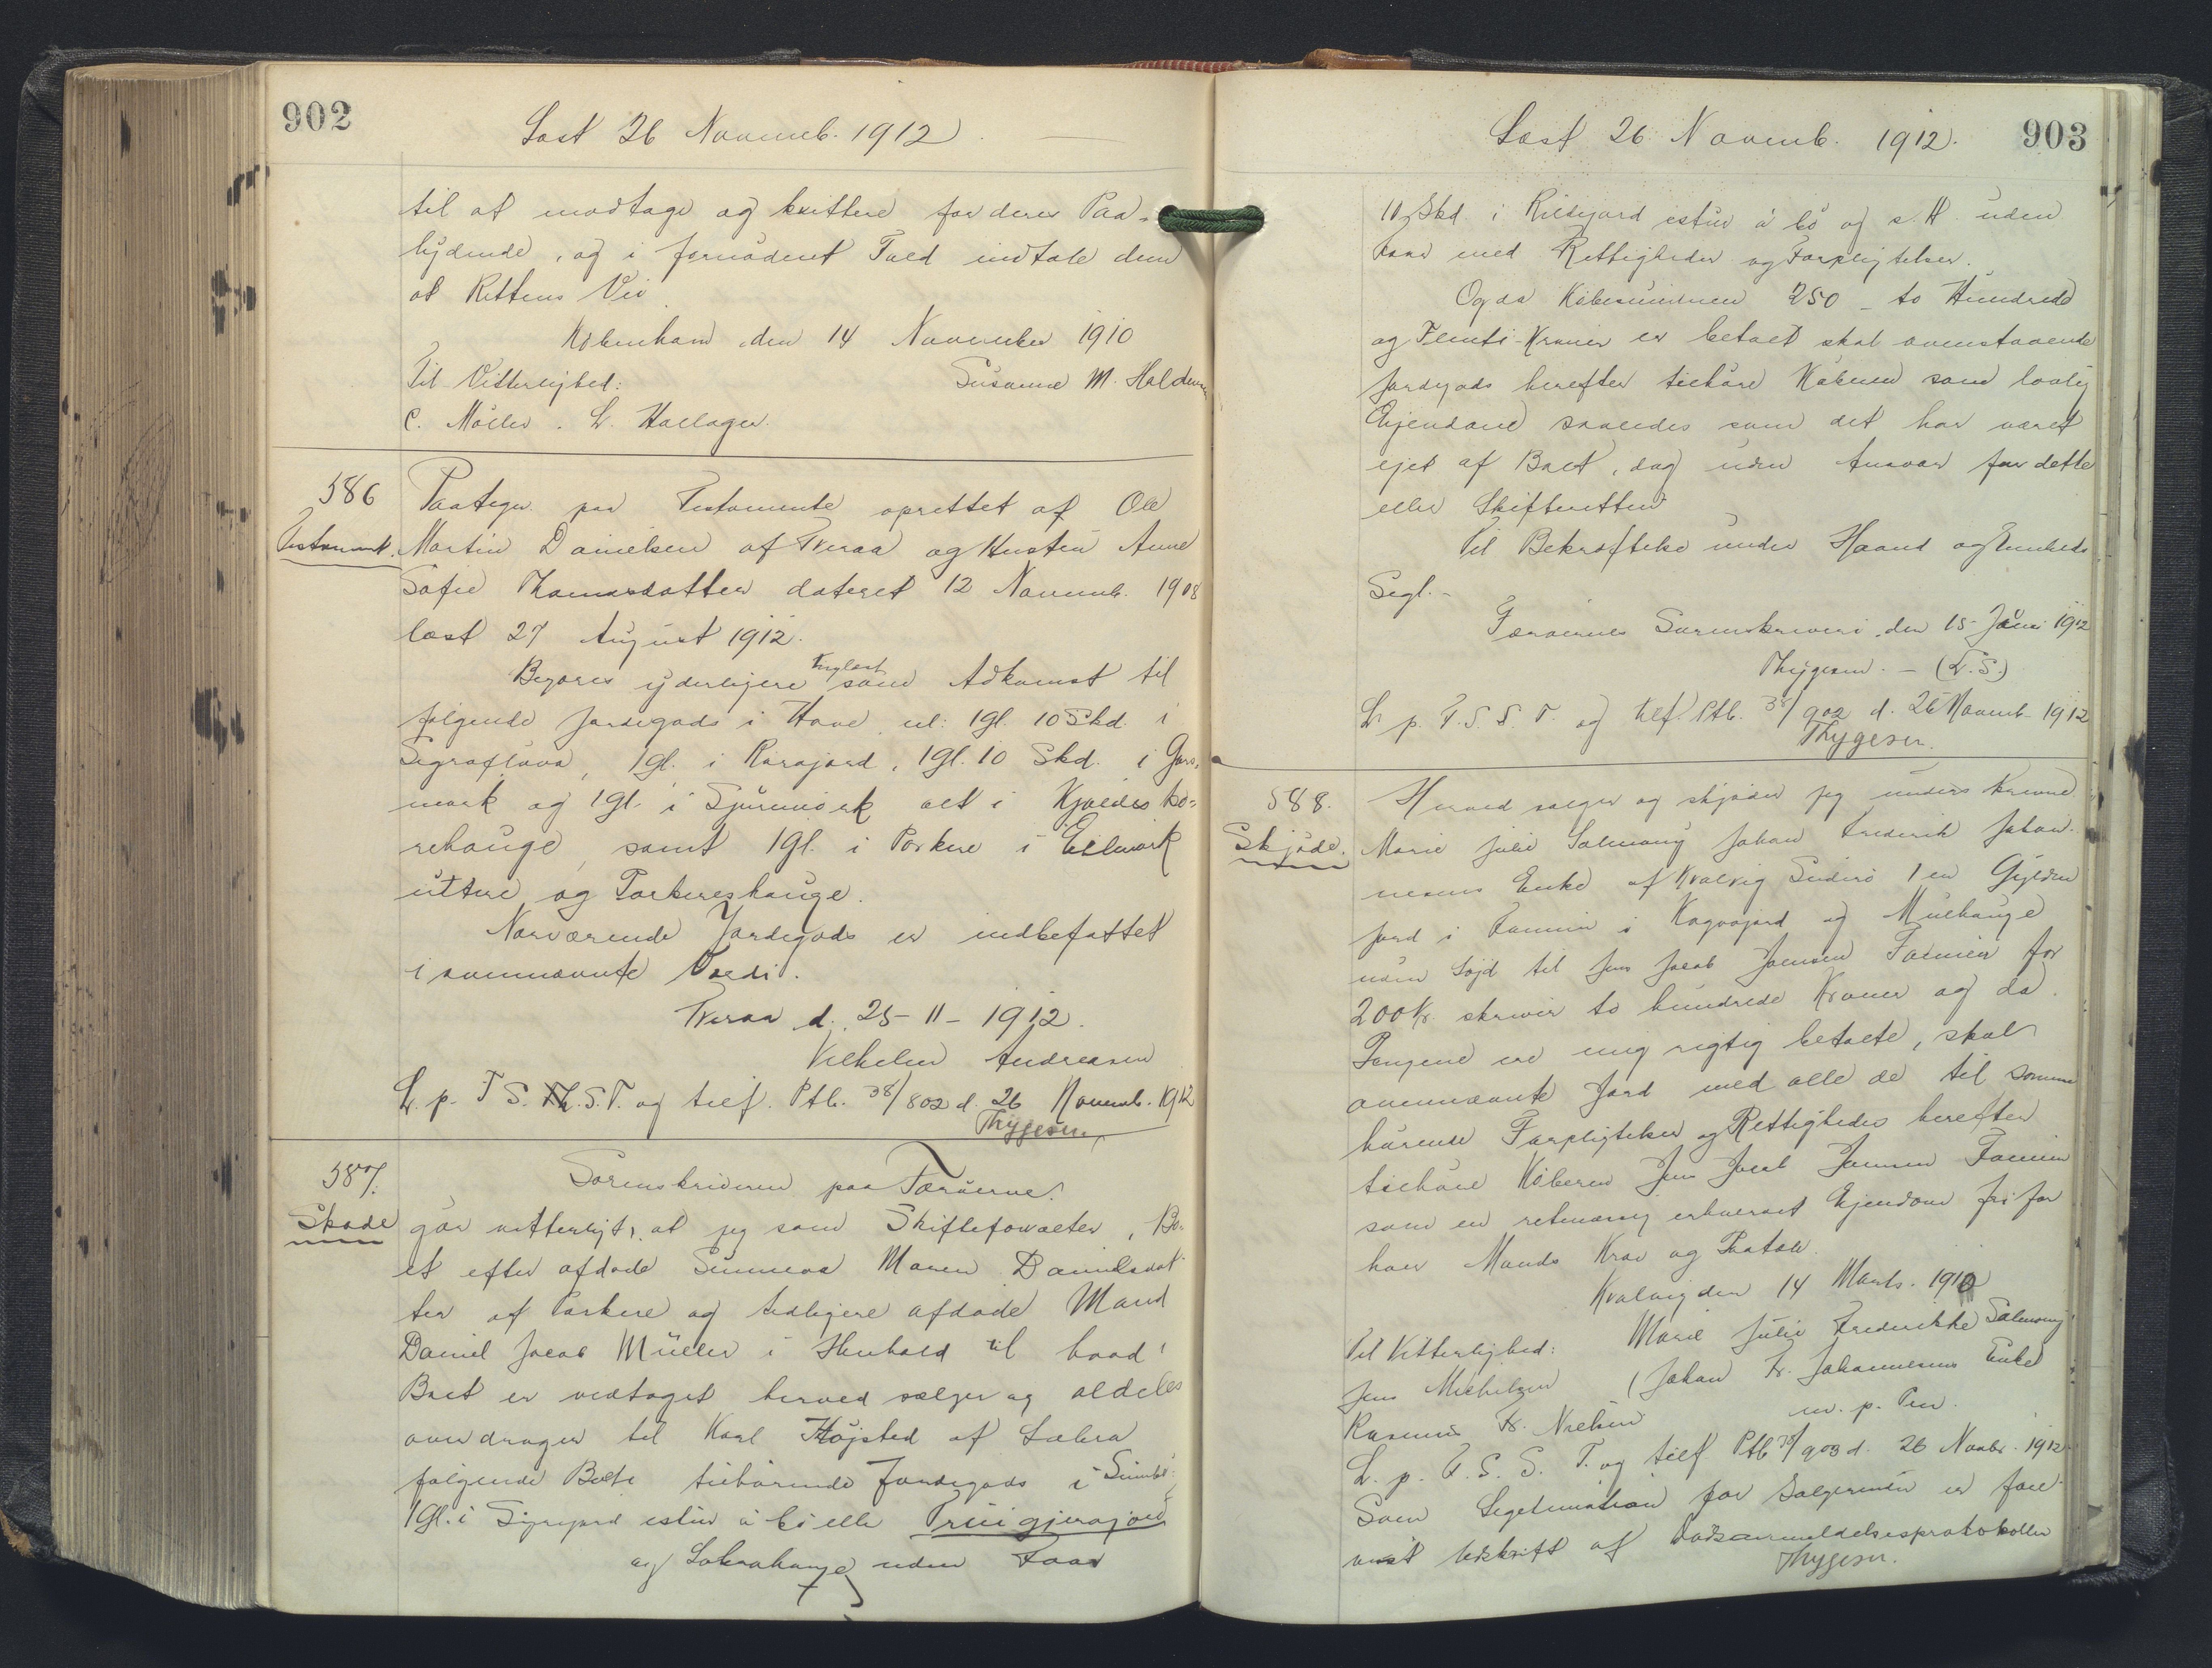 902
Læst 26 Novemb. 1912.
til at modtage og kvittere for deres Paa-
lydende, og i fornødent Fald indtale dem
ad Rettens Vei.
København den 14 November 1910
Til Vitterlighed: Susanne M. Haldersen
C. Møller. L. Hallager.
586 Paategn. paa Testamente oprettet af Ole
Testament. Martin Danielsen af Tveraa og Hustru Anne
Sofie Thomasdatter dateret 12 Novemb. 1908
læst 27 August 1912.
Begæres yderligere tinglæst som Adkomst til
følgende Jordegods i Hove nl: 1 gl. 10 Skd. i
1 gl. i 1 gl. 10 Skd. i
mark og 1 gl. i alt i
rehauge, samt 1 gl. i Porkere i
uttire og Porkereshauge.
Nærværende Jordegods er indbefattet
i ovennævnte Værdi.
Tveraa d. 25-11-1912.
Vilhelm Andreasen
L. p. F. S. S. T. og tilf. Ptb. 38/802 d. 26 Novemb. 1912
Thygesen.
587. Sorenskriveren paa Færøerne.
Skøde gør vitterligt, at jeg som Skifteforvalter, Bo-
et efter afdøde Sunneva Maren Danielsdat-
ter af Porkere og tidligere afdøde Mand
Daniel Jacob Müller i Henhold til hvad i
Boet er vedtaget herved sælger og aldeles
overdrager til Karl Højsted af Lobra
følgende Boet tilhørende Jordegods i Sumbø:
1 Gl. i estur á bø eller
og Lobrahauge uden Faar
Læst 26 Novemb. 1912. 903
10 Skd. i estur á bø og s. H. uden
Faar med Rettigheder og Forpligtelser.
Og da Købesummen 250 - to Hundrede
og Femti - Kroner er betalt skal ovenstaaende
Jordgods herefter tilhøre Køberen som lovlig
Ejendom saaledes som det har været
ejet af Boet, dog uden Ansvar for dette
eller Skifteretten
Til Bekræftelse under Haand og Embeds
Segl. -
Færøernes Sorenskriveri, den 15 Juni 1912
Thygesen. - (L. S.)
L. p. F. S. S. T. og tilf. Ptb. 38/902 d. 26 Novemb. 1912
Thygesen.
588. Herved sælger og skjøder jeg underskrevne
Skjøde. Marie Julie Salmony Johan Frederik Johan-
nesens Enke af Kvalvig Suderø 1 en Gylden
Jord i Famien i og
uden Søjd til Jens Jacob Joensen Famien for
200 Kr. skriver to hundrede Kroner og da
Pengene ere mig rigtig betalte, skal
ovennævnte Jord med alle de til samme
hørende Forpligtelser og Rettigheder herefter
tilhøre Køberen Jens Jacob Joensen Famien
som en retmæssig erhvervet Ejendom fri for
hver Mands Krav og Paatale.
Kvalvig den 14 Marts. 1910
Til Vitterlighed: Marie Julie Frederikke Salmony
Jens Michelsen (Johan Fr. Johannesens Enke)
Rasmus Fr. Nielsen m. p. Pen.
L. p. F. S. S. T. og tilf. Ptb. 38/903 d. 26 Novbr. 1912
Som Legitimation for Sælgersken er fore-
vist Udskrift af Dødsanmeldelsesprotokollen
Thygesen.